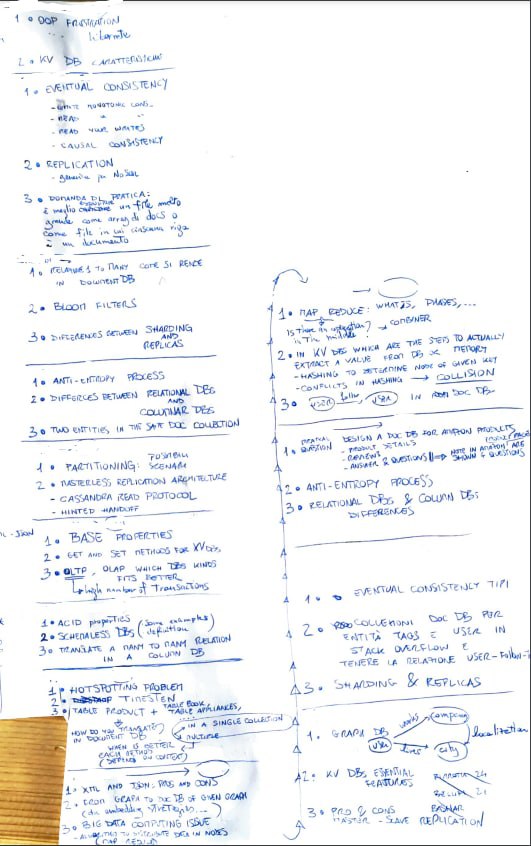 1 • OOP FRUSTRATION
2 • KV DB CARATTERISTICHE
1 • EVENTUAL CONSISTENCY
- WRITE MONOTONIC CONS.
- READ " "
- READ YOUR WRITES
- CAUSAL CONSISTENCY
2 • REPLICATION
- generica per NoSQL
3 • DOMANDA DI PRATICA:
è meglio un file molto
grande come array di docs o
come file in cui ciascuna riga
è un documento
1 • RELATIONE 1 TO MANY COME SI RENDE
IN DOCUMENT DB
2 • BLOOM FILTERS
3 • DIFFERENCES BETWEEN SHARDING
AND
REPLICAS
1 • ANTI-ENTROPY PROCESS
2 • DIFFERCES BETWEEN RELATIONAL DBs
AND
COLUMNAR DBs
3 • TWO ENTITIES IN THE SAME DOC COLLECTION
1 • PARTITIONING: POSSIBILI
SCENARI
2 • MASTERLESS REPLICATION ARCHITECTURE
- CASSANDRA READ PROTOCOL
- HINTED HANDOFF
1 • BASE PROPERTIES
2 • GET AND SET METHODS FOR KV DBs
3 • OLTP, OLAP WHICH DBs KINDS
FITS BETTER
high number of Transactions
1 • ACID properties (some examples)
2 • SCHEMALESS DBs (definition)
3 • TRANSLATE A MANY TO MANY RELATION
IN A COLUMN DB
1 • HOTSPOTTING PROBLEM
2 • TIMESTEN
3 • TABLE PRODUCT + TABLE BOOK,
TABLE APPLIANCES,
HOW DO YOU TRANSLATE
IN DOCUMENT DB
IN A SINGLE COLLECTION
MULTIPLE
WHEN IS BETTER
EACH METHOD
(DEPEND ON CONTEXT)
1 • XML AND JSON, PROS AND CONS
2 • FROM GRAPH TO DOC DB OF GIVEN GRAPH
3 • BIG DATA COMPUTING ISSUE
- ALGORITHMS TO DISTRIBUTE DATA IN NODES
(MAP REDUCE
1 • MAP REDUCE: WHAT IS, PHASES,...
Is there an operation?
in the middle → COMBINER
2 • IN KV DBs WHICH ARE THE STEPS TO ACTUALLY
EXTRACT A VALUE FROM DB MEMORY
- HASHING TO DETERMINE NODE OF GIVEN KEY
- CONFLICTS IN HASHING → COLLISION
3 • USER follow USER IN DOC DB.
1 • QUESTION DESIGN A DOC DB FOR AMAZON PRODUCTS
- PRODUCT DETAILS
- REVIEWS
- ANSWER & QUESTIONS NOTE IN AMAZON ARE
SHOWN QUESTIONS
2 • ANTI-ENTROPY PROCESS
3 • RELATIONAL DBs & COLUMN DBs
DIFFERENCES
1 • EVENTUAL CONSISTENCY TIPI
2 • COLLEZIONI DOC DB PER
ENTITÀ TAGS E USER IN
STACK OVERFLOW E
TENERE LA RELATIONE USER-
3 • SHARDING & REPLICAS
1 • GRAPH DB
user works company
lives city localization
2 • KV DBs ESSENTIAL
FEATURES
3 • PRO & CONS
MASTER-SLAVE REPLICATION